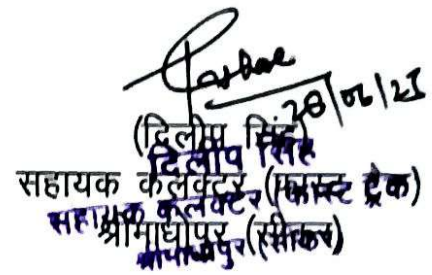 28/06/23
(दिलीप सिंह)
दिलीप सिंह
सहायक कलेक्टर (फास्ट ट्रेक)
सहायक कलेक्टर (फास्ट ट्रेक)
श्रीमाधोपुर (सीकर)
श्रीमाधोपुर